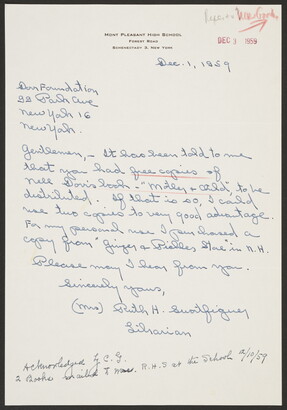 Review New Books
DEC 3 1959
MONT PLEASANT HIGH SCHOOL
FOREST ROAD
SCHENECTADY 3, NEW YORK
Dec. 1, 1959
Dors Foundation
22 Park Ave
New York 16
New York.
Gentlemen, - It has been told to me
that you had free copies of
Nell Dors book - "Mother & Child", to be
distributed. If that is so, I could
use two copies to very good advantage.
For my personal use I purchased a
copy from "Ginger & Pickles Store" in N.H.
Please may I hear from you.
Sincerely yours,
(Mrs) Ruth H.
Librarian
Acknowledged
2 Books mailed to Mrs. R.H.S at the School 12/10/59